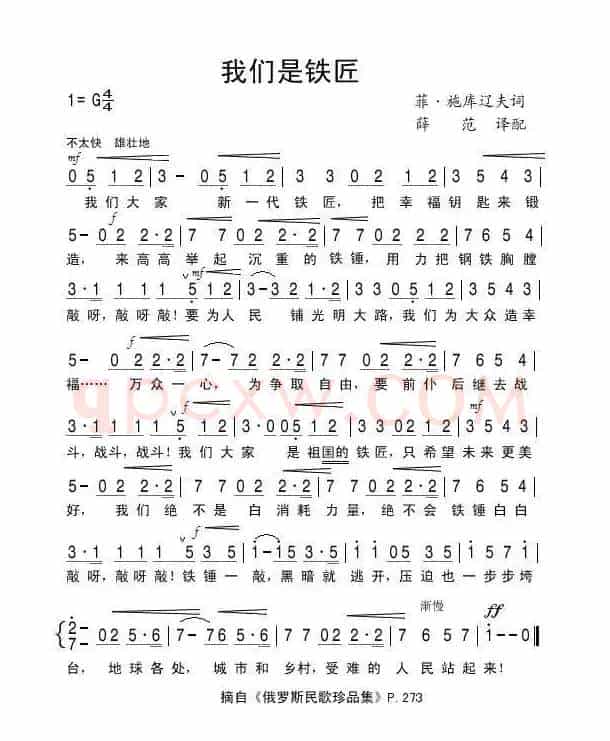 我们是铁匠
1=G4/4
菲·施库辽夫词
薛 范 译配
不太快 雄壮地
mf
0 5 1 2 | 3 - 0 5 1 2 | 3 3 0 5 1 2 | 3 5 4 3 |
我们大家 新一代铁匠，把幸福钥匙来锻
f
5 - 0 2 2·2 | 7 7 0 2 2·2 | 7 7 0 2 2·2 | 7 6 5 4 |
造，来高高举起沉重的铁锤，用力把钢铁胸膛
mf
3·1 1 1 1 1 5 1 2 | 3-3 3 0 5 1 2 | 3 3 0 5 1 2 | 3 5 4 3 |
敲呀，敲呀敲！要为人民 铺光明大路，我们为大众造幸
f
5 - 0 2 2·2 | 7-7 0 2 2·2 | 7 7 0 2 2·2 | 7 6 5 4 |
福…… 万众一心，为争取自由，要前仆后继去战
mf
3·1 1 1 1 1 5 1 2 | 3 3 0 5 1 2 | 3 3 0 5 1 2 | 3 5 4 3 |
斗，战斗，战斗！我们大家 是祖国的铁匠，只希望未来更美
5 - 0 2 2·2 | 7 7 0 2 2·2 | 7 7 0 2 2·2 | 7 6 5 4 |
好，我们绝不是白消耗力量，绝不会铁锤白白
f
3·1 1 1 1 1 5 3 5 | 1-1 5 3 5 | 1 1 0 5 3 5 | 1 1 5 3 |
敲呀，敲呀敲！铁锤一敲，黑暗就逃开，压迫也一步步垮
渐慢 ff
2/7 - 0 2 5·6 | 7-7 6 5·6 | 7 7 0 2 2·2 | 7 6 5 7 | 1--0 ‖
台，地球各处，城市和乡村，受难的人民站起来！
摘自《俄罗斯民歌珍品集》P. 273
qpcxw.com